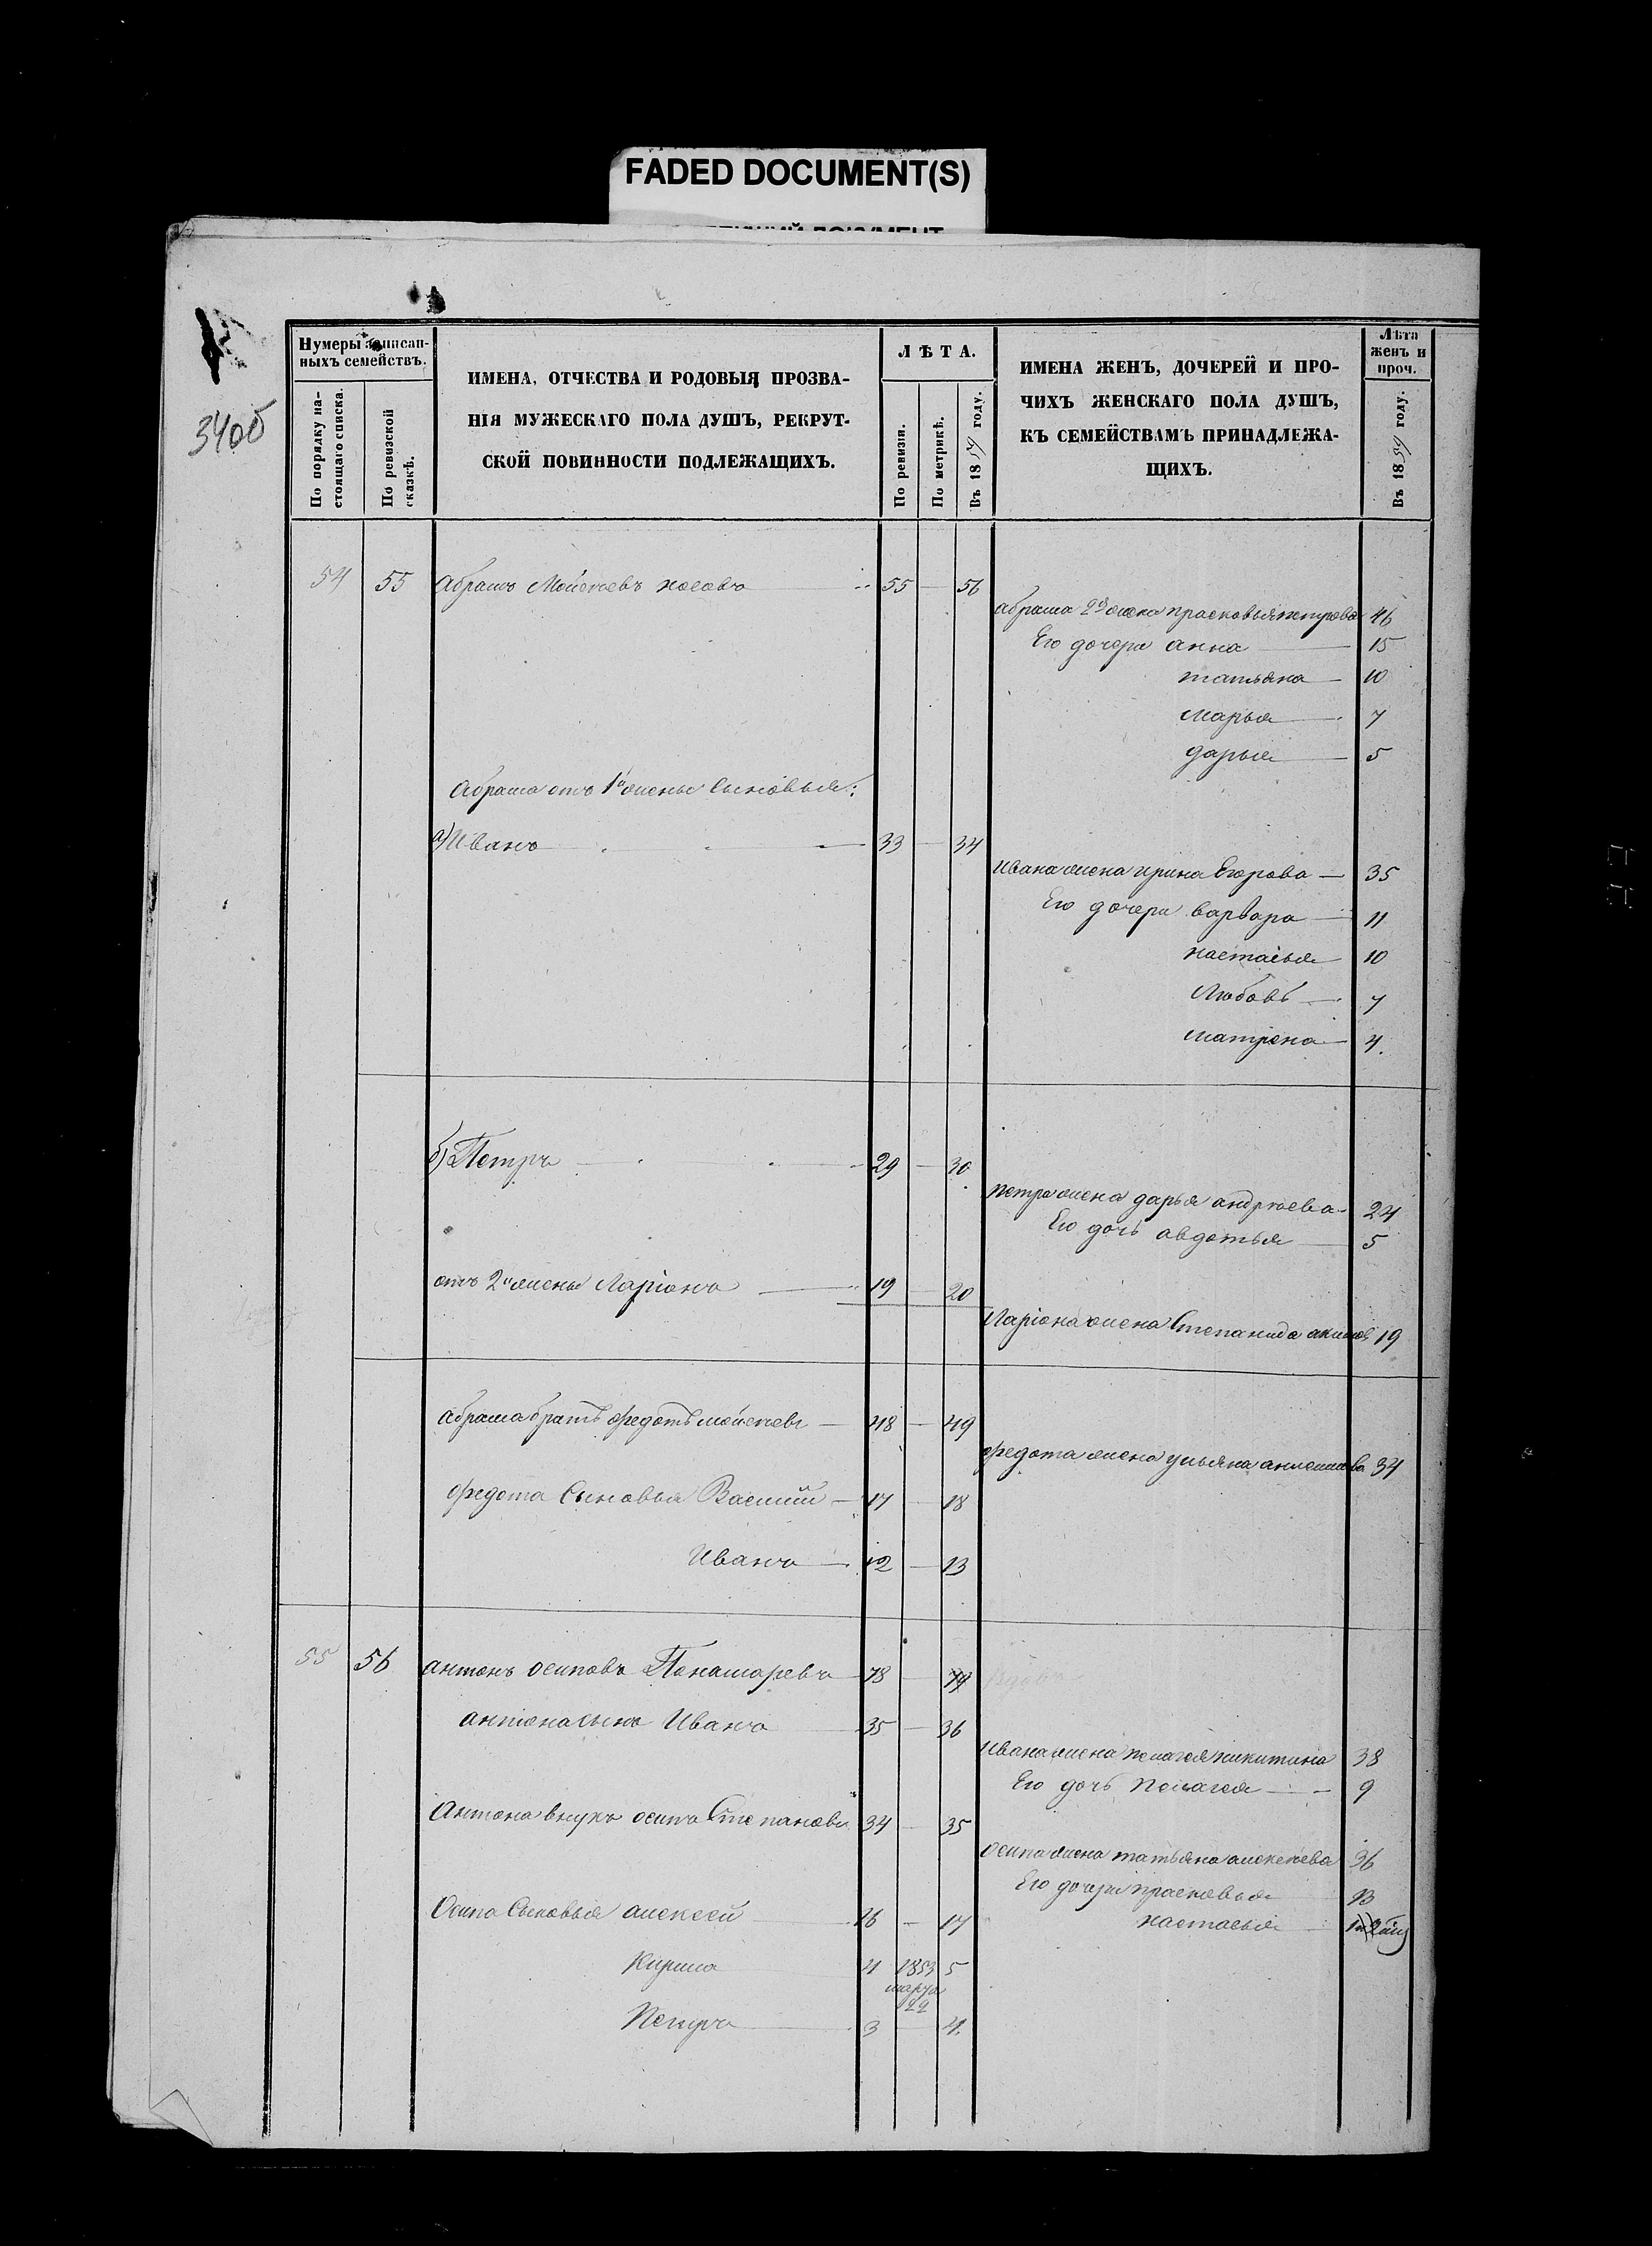 FADED DOCUMENT(S)
340об
Нумеры записан-
ныхъ семействъ.
По порядку на-
стоящаго списка.
По ревизской
сказкѣ.
ИМЕНА, ОТЧЕСТВА И РОДОВЫЯ ПРОЗВА-
НІЯ МУЖЕСКАГО ПОЛА ДУШЪ, РЕКРУТ-
СКОЙ ПОВИННОСТИ ПОДЛЕЖАЩИХЪ.
ЛѢТА.
По ревизіи.
По метрикѣ.
Въ 1859 году.
ИМЕНА ЖЕНЪ, ДОЧЕРЕЙ И ПРО-
ЧИХЪ ЖЕНСКАГО ПОЛА ДУШЪ,
КЪ СЕМЕЙСТВАМЪ ПРИНАДЛЕЖА-
ЩИХЪ.
Лѣта
женъ и
проч.
Въ 1859 году.
54 55 Абрамъ Мойсѣевъ Носовъ 55 — 56
Абрама 2я жена Прасковья Петрова 46
Его дочери Анна — 15
Татьяна — 10
Марья — 7
Дарья — 5
Абрама отъ 1й жены сыновья:
а) Иванъ — 33 — 34
Ивана жена Ирина Егорова — 35
Его дочери Варвара — 11
Настасья 10
Любовь — 7
Матрена — 4.
б) Петръ — 29 — 30
Петра жена Дарья Андрѣева 24
Его дочь Авдотья — 5
отъ 2й жены Ларіонъ — 19 — 20
Ларіона жена Степанида 19
Абрама братъ Федотъ Мойсѣевъ — 48 — 49
Федота жена Ульяна 34
Федота сыновья Василий — 17 — 18
Иванъ — 12 — 13
55 56 Антонъ Осиповъ Понамаревъ 78 — 79
Антона сынъ Иванъ 35 — 36
Ивана жена Пелагея Никитина 38
Его дочь Пелагея — 9
Антона внукъ Осипъ Степановъ 34 — 35
Осипа жена Татьяна Алексѣева 36
Его дочери Прасковья 13
Осипа сыновья Алексей 16 — 17
Настасья
Кирила 4 1853 5
марта
22
Петръ 3 — 4.